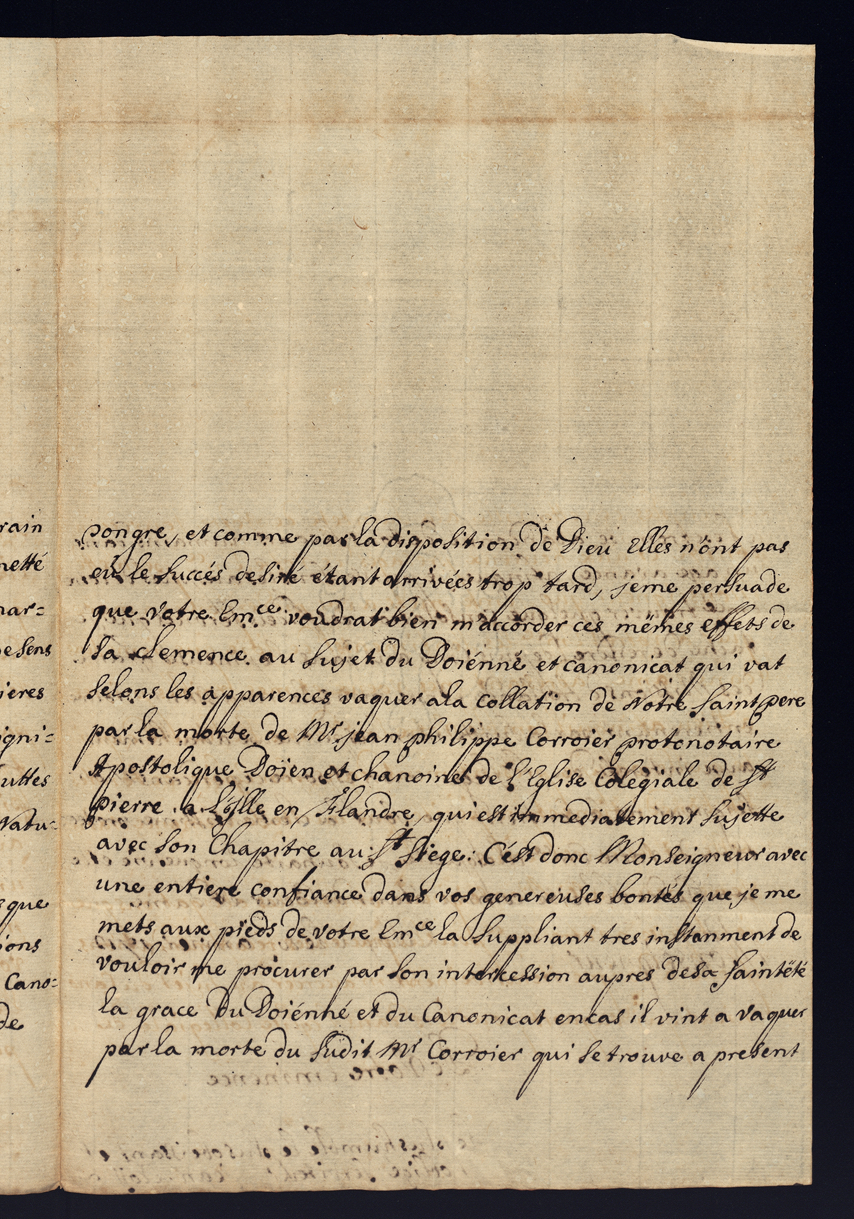 rain
netté
nar=
e sens
ieres
igni=
uttes
Natu=
que
ions
Cano=
de
Dongre, et comme par la disposition de Dieu Elles n'ônt pas
eu le Succés desiré étant arrivées trop tard, jeme persuade
que Votre Em^ce voudrat bien m'accorder ces mêmes effets de
Sa Clemence au Sujet du Doiénné et canonicat qui vat
Selons les apparences vaquer ala Collation de Notre Saint pere
par la morte de M^r jean philippe Corroier protonotaire
Apostolique Doïen et chanoine de l'Eglise Colegiale de S^t
pierre a L'ylle en Flandre, qui est immediatement Sujette
avec Son Chapitre au S^t Siege: C'est donc Monseigneur avec
une entiere confiance dans vos genereuses bontés que je me
mets aux pieds de votre Em^ce la Suppliant tres instanment de
vouloir me procurer par Son intercession aupres desa Saintëté
la grace Du Doiénné et du Canonicat encas il vint a vaquer
par la morte du Sudit M^r Corroier qui Se trouve a present